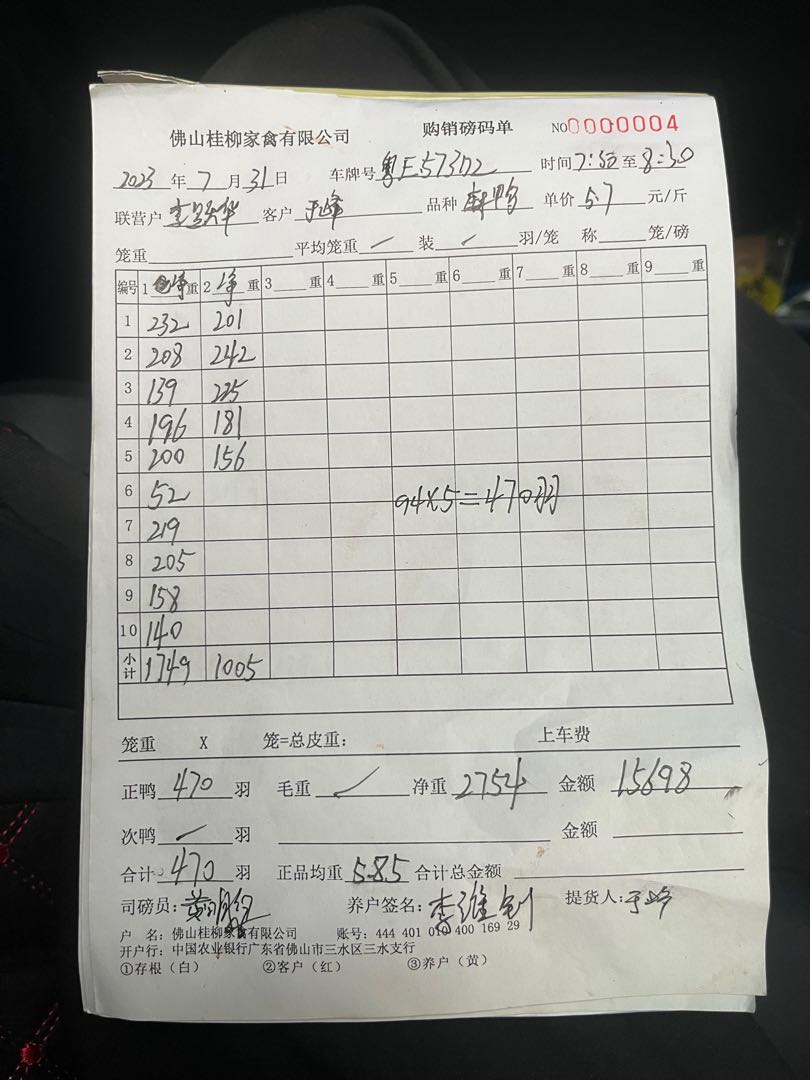 佛山桂柳家禽有限公司 购销磅码单 NO 0000004
2023 年 7 月 31 日 车牌号 粤E573D2 时间 7:50 至 8:30
联营户 客户 于峰 品种 麻鸭 单价 5.7 元/斤
笼重 平均笼重 / 装 / 羽/笼 称 笼/磅
编号 1 净 重 2 净 重 3 重 4 重 5 重 6 重 7 重 8 重 9 重
1 232 201
2 208 242
3 139 225
4 196 181
5 200 156
6 52
94×5=470羽
7 219
8 205
9 158
10 140
小计 1749 1005
笼重 X 笼=总皮重: 上车费
正鸭 470 羽 毛重 / 净重 2754 金额 15698
次鸭 / 羽 金额
合计 470 羽 正品均重 5.85 合计总金额
司磅员: 养户签名: 李维钊 提货人: 于峰
户 名: 佛山桂柳家禽有限公司 账号: 444 401 010 400 169 29
开户行: 中国农业银行广东省佛山市三水区三水支行
①存根（白） ②客户（红） ③养户（黄）